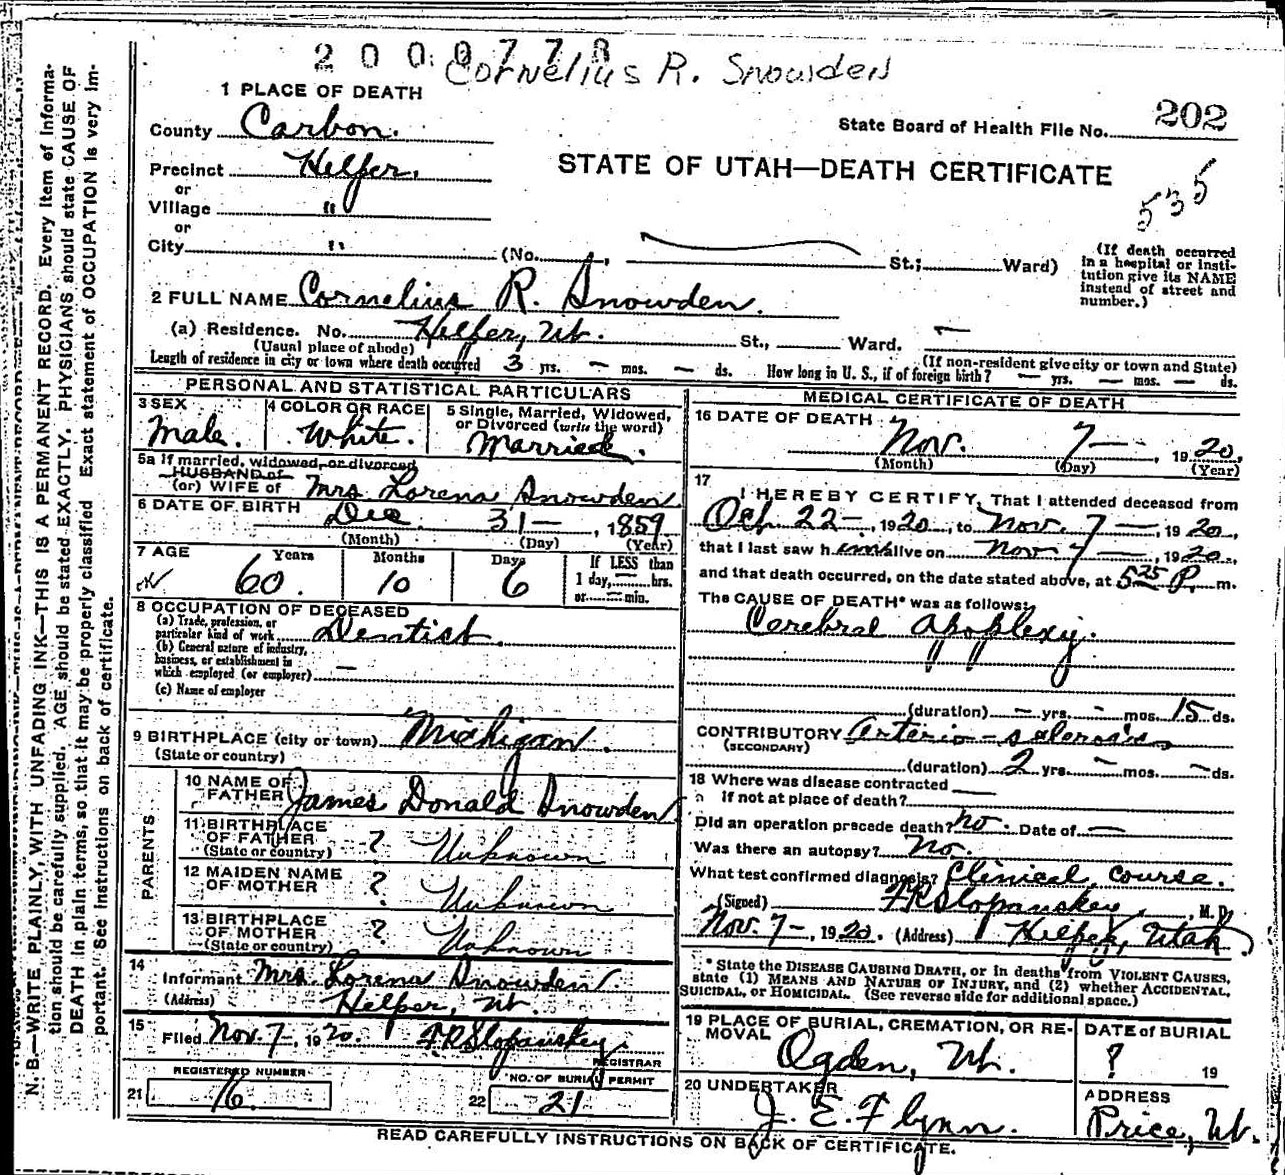 2000778
Cornelius R. Snowden
1 PLACE OF DEATH
County Carbon.
State Board of Health File No. 202
Precinct Helper.
STATE OF UTAH—DEATH CERTIFICATE
535
or
Village "
or
City " (No. , St.; Ward)
(If death occurred in a hospital or insti-
tution give its NAME
instead of street and
number.)
2 FULL NAME Cornelius R. Snowden.
(a) Residence. No. Helper, Ut. St., Ward.
(Usual place of abode)
(If non-resident give city or town and State)
Length of residence in city or town where death occurred 3 yrs. — mos. — ds. How long in U. S., if of foreign birth? — yrs. — mos. — ds.
PERSONAL AND STATISTICAL PARTICULARS
3 SEX
Male.
4 COLOR OR RACE
White.
5 Single, Married, Widowed,
or Divorced (write the word)
Married.
5a If married, widowed, or divorced
HUSBAND of
(or) WIFE of Mrs Lorena Snowden
6 DATE OF BIRTH Dec. 31— , 1859
(Month) (Day) (Year)
7 AGE Years Months Days
60. 10 6
If LESS than
1 day, — hrs.
or — min.
8 OCCUPATION OF DECEASED
(a) Trade, profession, or
particular kind of work Dentist.
(b) General nature of industry,
business, or establishment in
which employed (or employer) —
(c) Name of employer
9 BIRTHPLACE (city or town) Michigan.
(State or country)
PARENTS
10 NAME OF
FATHER James Donald Snowden
11 BIRTHPLACE
OF FATHER ? Unknown
(State or country)
12 MAIDEN NAME
OF MOTHER ? Unknown
13 BIRTHPLACE
OF MOTHER ? Unknown
(State or country)
14
Informant Mrs. Lorena Snowden
(Address) Helper, Ut.
15
Filed Nov. 7—, 1920. F R Slopanskey
REGISTRAR
REGISTERED NUMBER
21 16.
NO. OF BURIAL PERMIT
22 21
MEDICAL CERTIFICATE OF DEATH
16 DATE OF DEATH
Nov. 7— , 1920.
(Month) (Day) (Year)
17
I HEREBY CERTIFY, That I attended deceased from
Oct. 22—, 1920, to Nov. 7—, 1920,
that I last saw him alive on Nov 7—, 1920,
and that death occurred, on the date stated above, at 5 25 P. m.
The CAUSE OF DEATH* was as follows:
Cerebral Apoplexy.
(duration) — yrs. - mos. 15 ds.
CONTRIBUTORY Arterio-sclerosis
(SECONDARY)
(duration) 2 yrs. — mos. — ds.
18 Where was disease contracted
if not at place of death?
Did an operation precede death? No. Date of —
Was there an autopsy? No.
What test confirmed diagnosis? Clinical course.
(Signed) F R Slopanskey, M. D.
Nov. 7—, 1920. (Address) Helper, Utah
* State the DISEASE CAUSING DEATH, or in deaths from VIOLENT CAUSES,
state (1) MEANS AND NATURE OF INJURY, and (2) whether ACCIDENTAL,
SUICIDAL, or HOMICIDAL. (See reverse side for additional space.)
19 PLACE OF BURIAL, CREMATION, OR RE-
MOVAL
Ogden, Ut.
DATE of BURIAL
? 19
20 UNDERTAKER
J. E. Flynn.
ADDRESS
Price, Ut.
READ CAREFULLY INSTRUCTIONS ON BACK OF CERTIFICATE.
N. B.—WRITE PLAINLY, WITH UNFADING INK—THIS IS A PERMANENT RECORD. Every item of informa-
tion should be carefully supplied. AGE should be stated EXACTLY. PHYSICIANS should state CAUSE OF
DEATH in plain terms, so that it may be properly classified Exact statement of OCCUPATION is very im-
portant. See instructions on back of certificate.